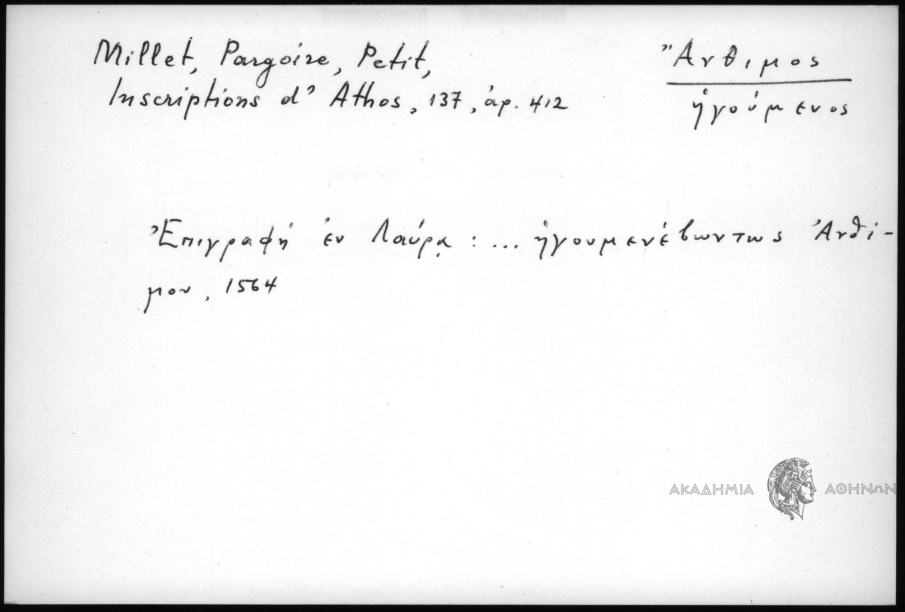 Millet, Pargoire, Petit,
Inscriptions d' Athos, 137, ἀρ. 412
Ἄνθιμος
ἡγούμενος
Ἐπιγραφή ἐν Λαύρᾳ : ... ἡγουμενέβωντως Ἀνθί-
μου, 1564
ΑΚΑΔΗΜΙΑ ΑΘΗΝΩΝ